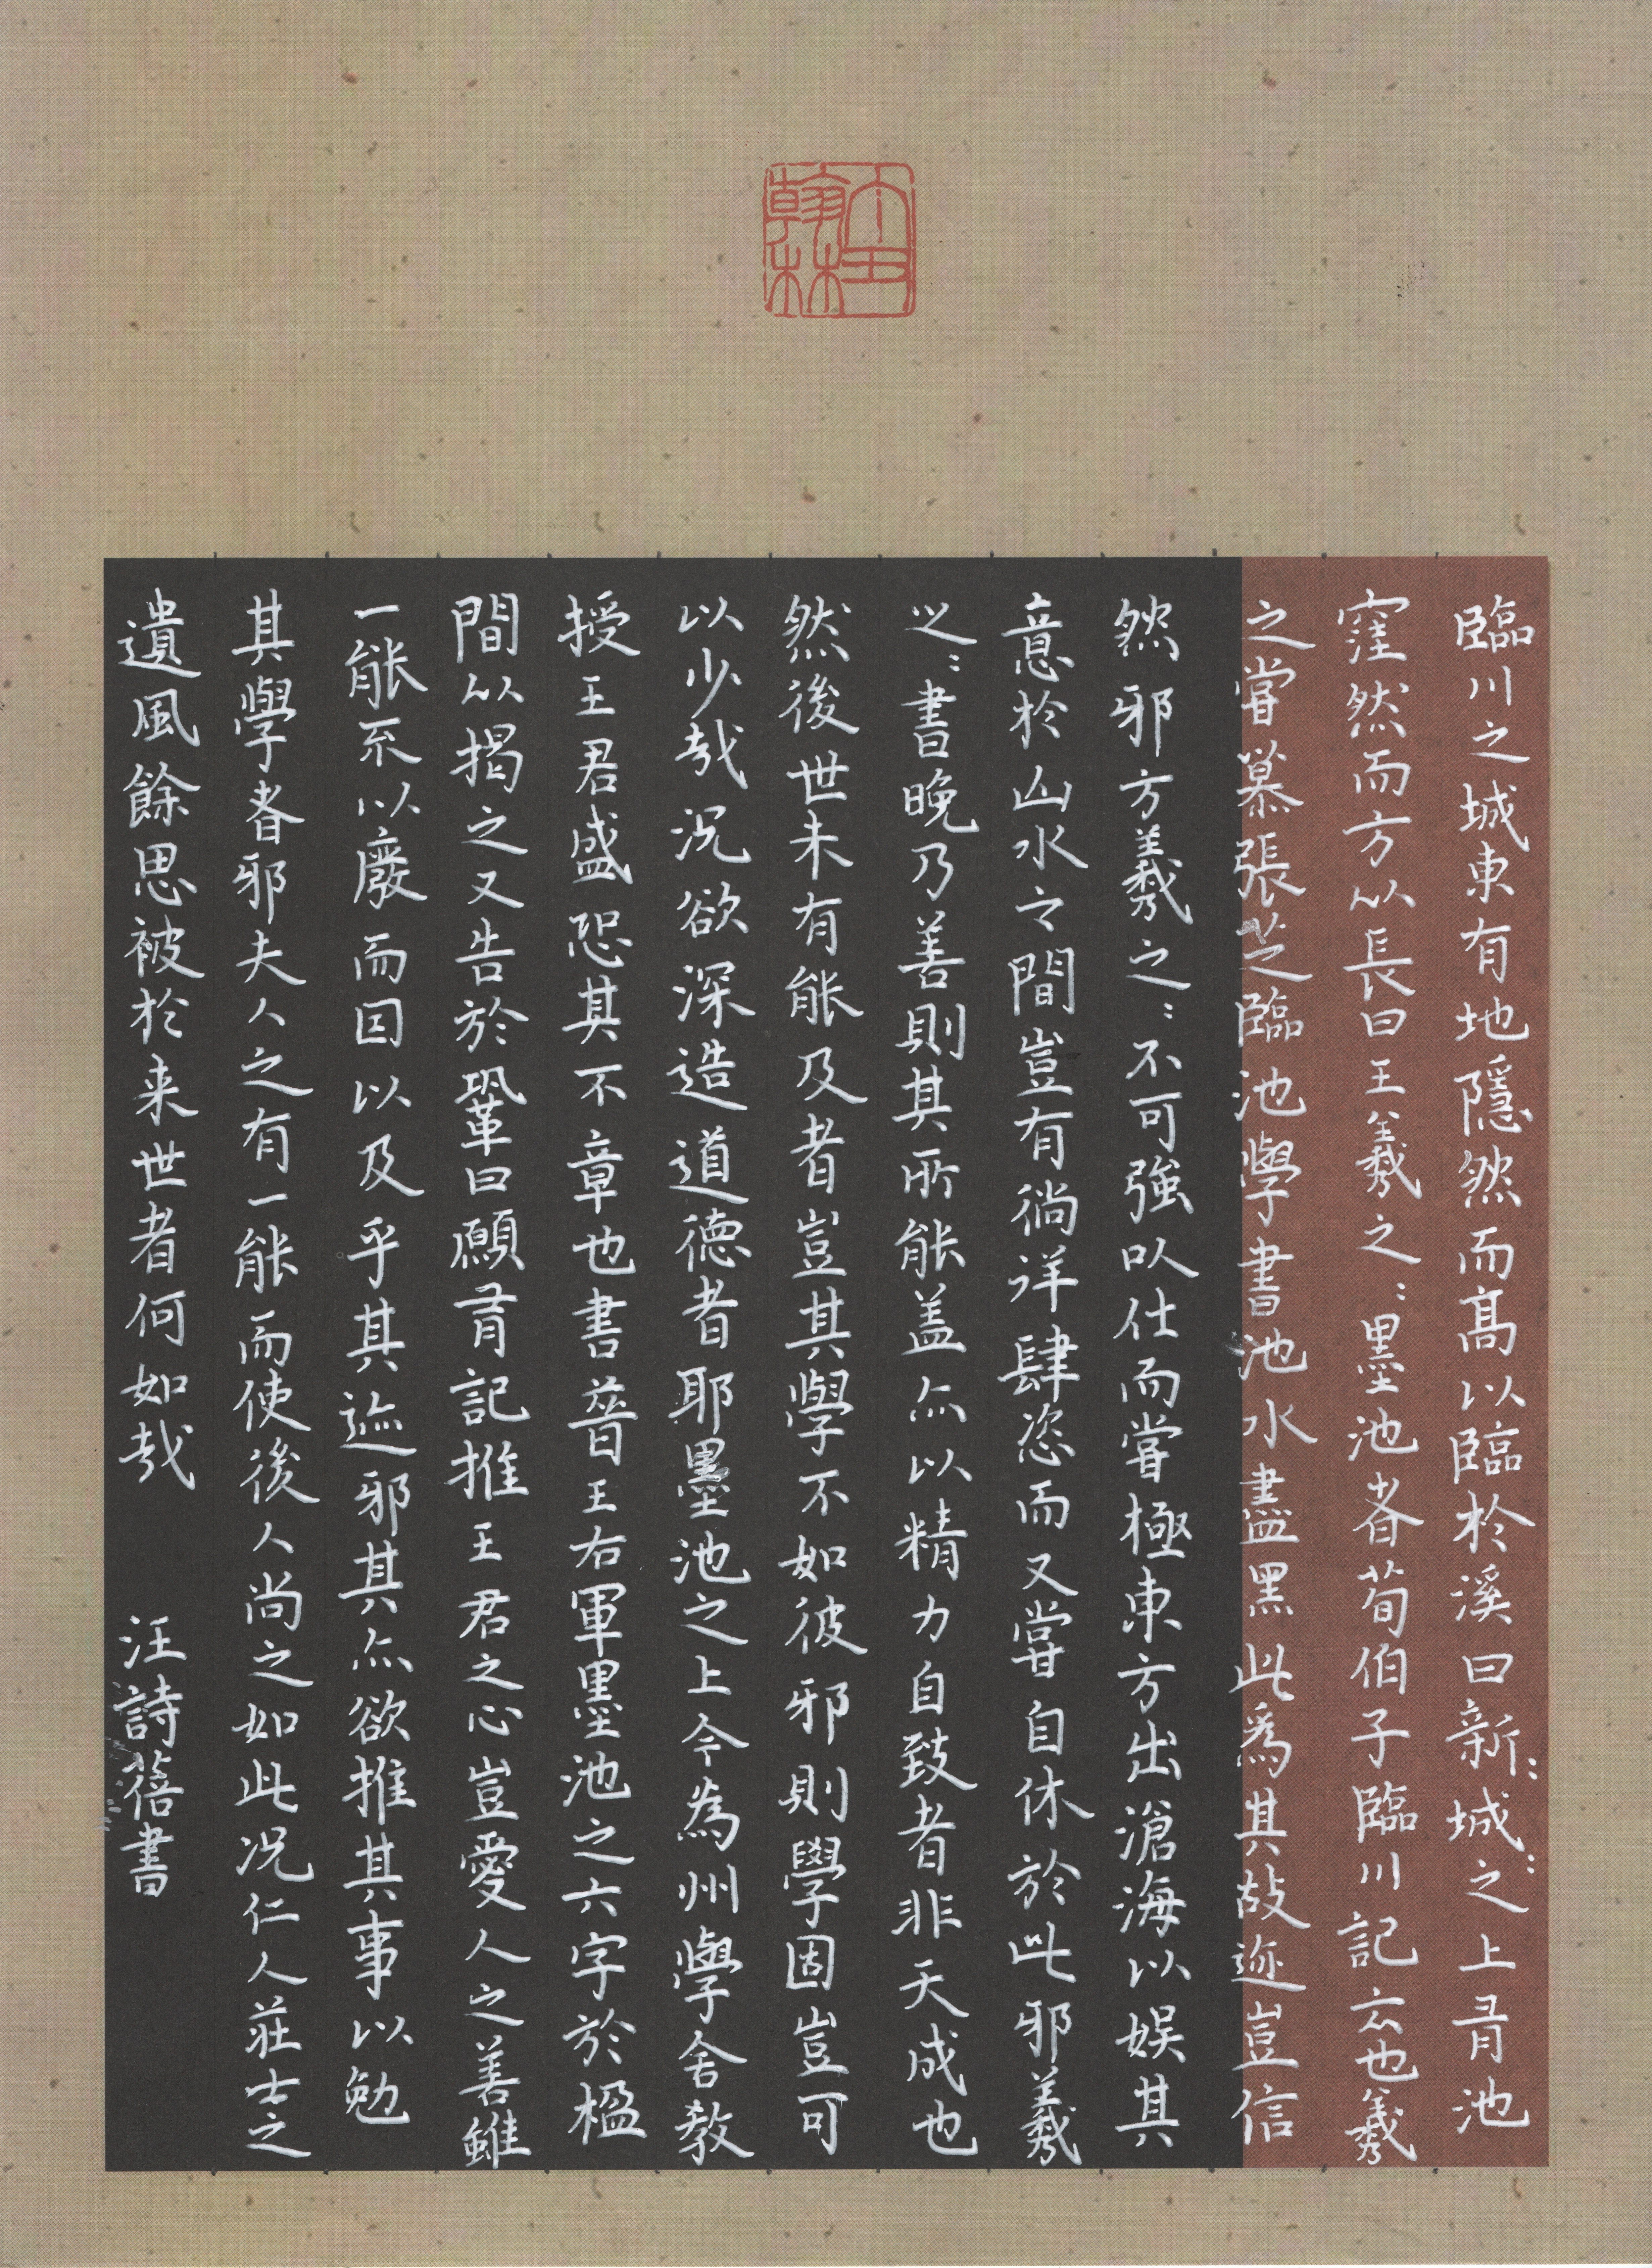 臨川之城東有地隱然而髙以臨於溪曰新：城：之上有池
窪然而方以長曰王羲之：墨池者荀伯子臨川記云也羲
之嘗慕張芝臨池學書池水盡黑此為其故迹豈信
然邪方羲之：不可強以仕而嘗極東方出滄海以娛其
意於山水之間豈有徜祥肆恣而又嘗自休於此邪羲
之：書晚乃善則其所能盖亦以精力自致者非天成也
然後世未有能及者豈其學不如彼邪則學固豈可
以少哉況欲深造道德者耶墨池之上今為州學舍教
授王君盛恐其不章也書晉王右軍墨池之六字於楹
間以揭之又告於鞏曰願有記推王君之心豈愛人之善雖
一能不以廢而因以及乎其迹邪其亦欲推其事以勉
其學者邪夫人之有一能而使後人尚之如此況仁人莊士之
遺風餘思被於来世者何如哉 汪詩蓓書